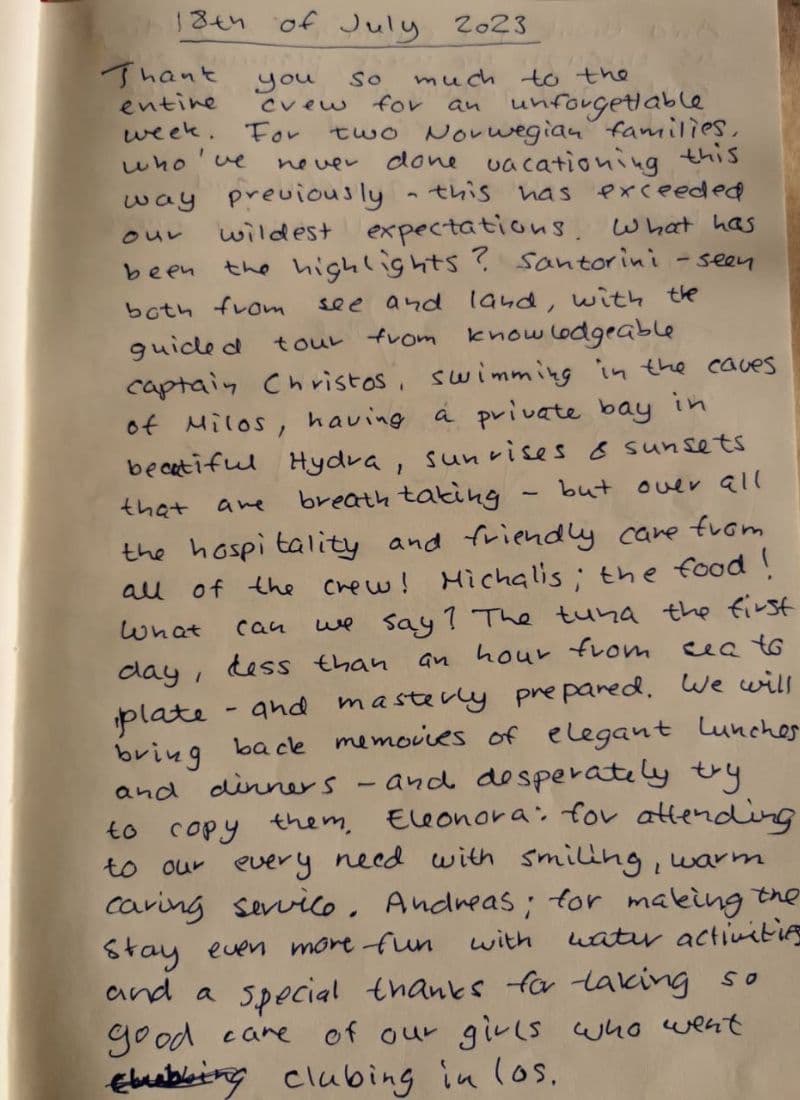 18th of July 2023
Thank you so much to the
entire crew for an unforgettable
week. For two Norwegian families,
who've never done vacationing this
way previously - this has exceeded
our wildest expectations. What has
been the highlights? Santorini - seen
both from see and land, with the
guided tour from knowledgeable
captain Christos, swimming in the caves
of Milos, having a private bay in
beatiful Hydra, sunrises & sunsets
that are breathtaking - but over all
the hospitality and friendly care from
all of the crew! Michalis; the food!
What can we say? The tuna the first
day, less than an hour from sea to
plate - and masterly prepared. We will
bring back memories of elegant lunches
and dinners - and desperately try
to copy them. Eleonora: for attending
to our every need with smiling, warm
caring service. Andreas; for making the
stay even more fun with water activities
and a special thanks for taking so
good care of our girls who went
clubing in Ios.